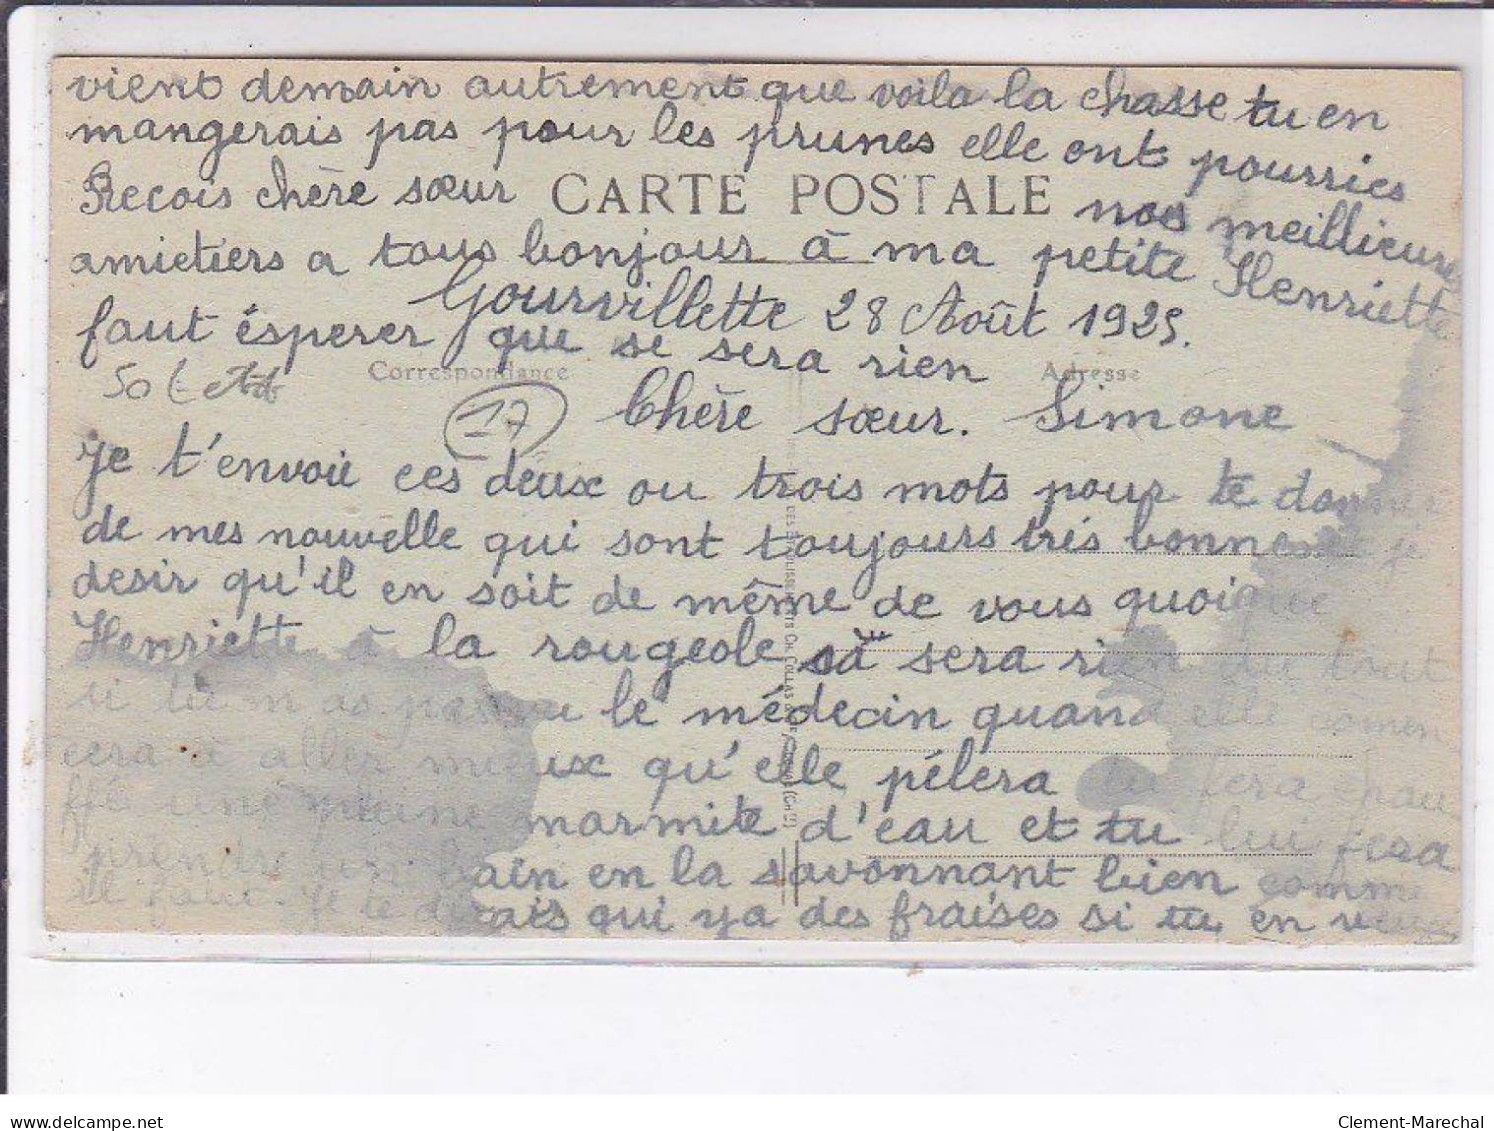 vient demain autrement que voila la chasse tu en
mangerais pas pour les prunes elle ont pourries
Recois chère sœur CARTE POSTALE nos meillieures
amietiers a tous bonjour à ma petite Henriette
Gourvillette 28 Août 1925.
faut ésperer que se sera rien
Correspondance Adresse
17
Chère sœur. Simone
Je t'envoie ces deux ou trois mots pour te donner
de mes nouvelle qui sont toujours très bonne et je
desir qu'il en soit de même de vous quoique
Henriette à la rougeole sa sera rien du tout
si tu m as pas vu le médecin quand elle comen
cera à aller mieux qu'elle pèlera tu fera chau
fée une pleine marmite d'eau et tu lui fera
prendre un bain en la savonnant bien comme
il faut. Je te dirais qui y a des fraises si tu en veux
delcampe.net
Clement-Marechal